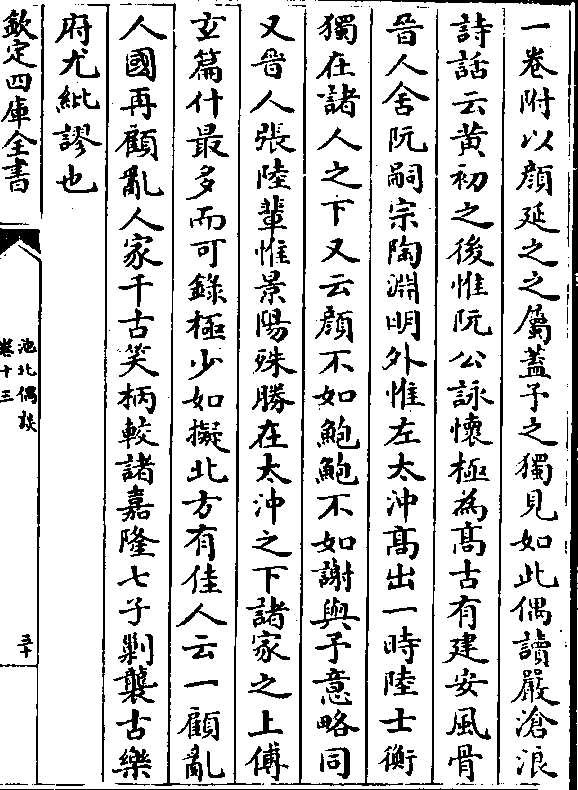 一卷附以顔延之之屬蓋予之獨見如此偶讀嚴滄浪
詩話云黄初之後惟阮公詠懷極為髙古有建安風骨
晉人舍阮嗣宗陶淵明外惟左太沖髙出一時陸士衡
獨在諸人之下又云顔不如鮑鮑不如謝與予意略同
又晉人張陸輩惟景陽殊勝在太沖之下諸家之上傅
玄篇什最多而可錄極少如擬北方有佳人云一顧亂
人國再顧亂人家千古笑柄較諸嘉隆七子剿襲古樂
府尤紕謬也
欽定四庫全書
池北偶談
卷十三